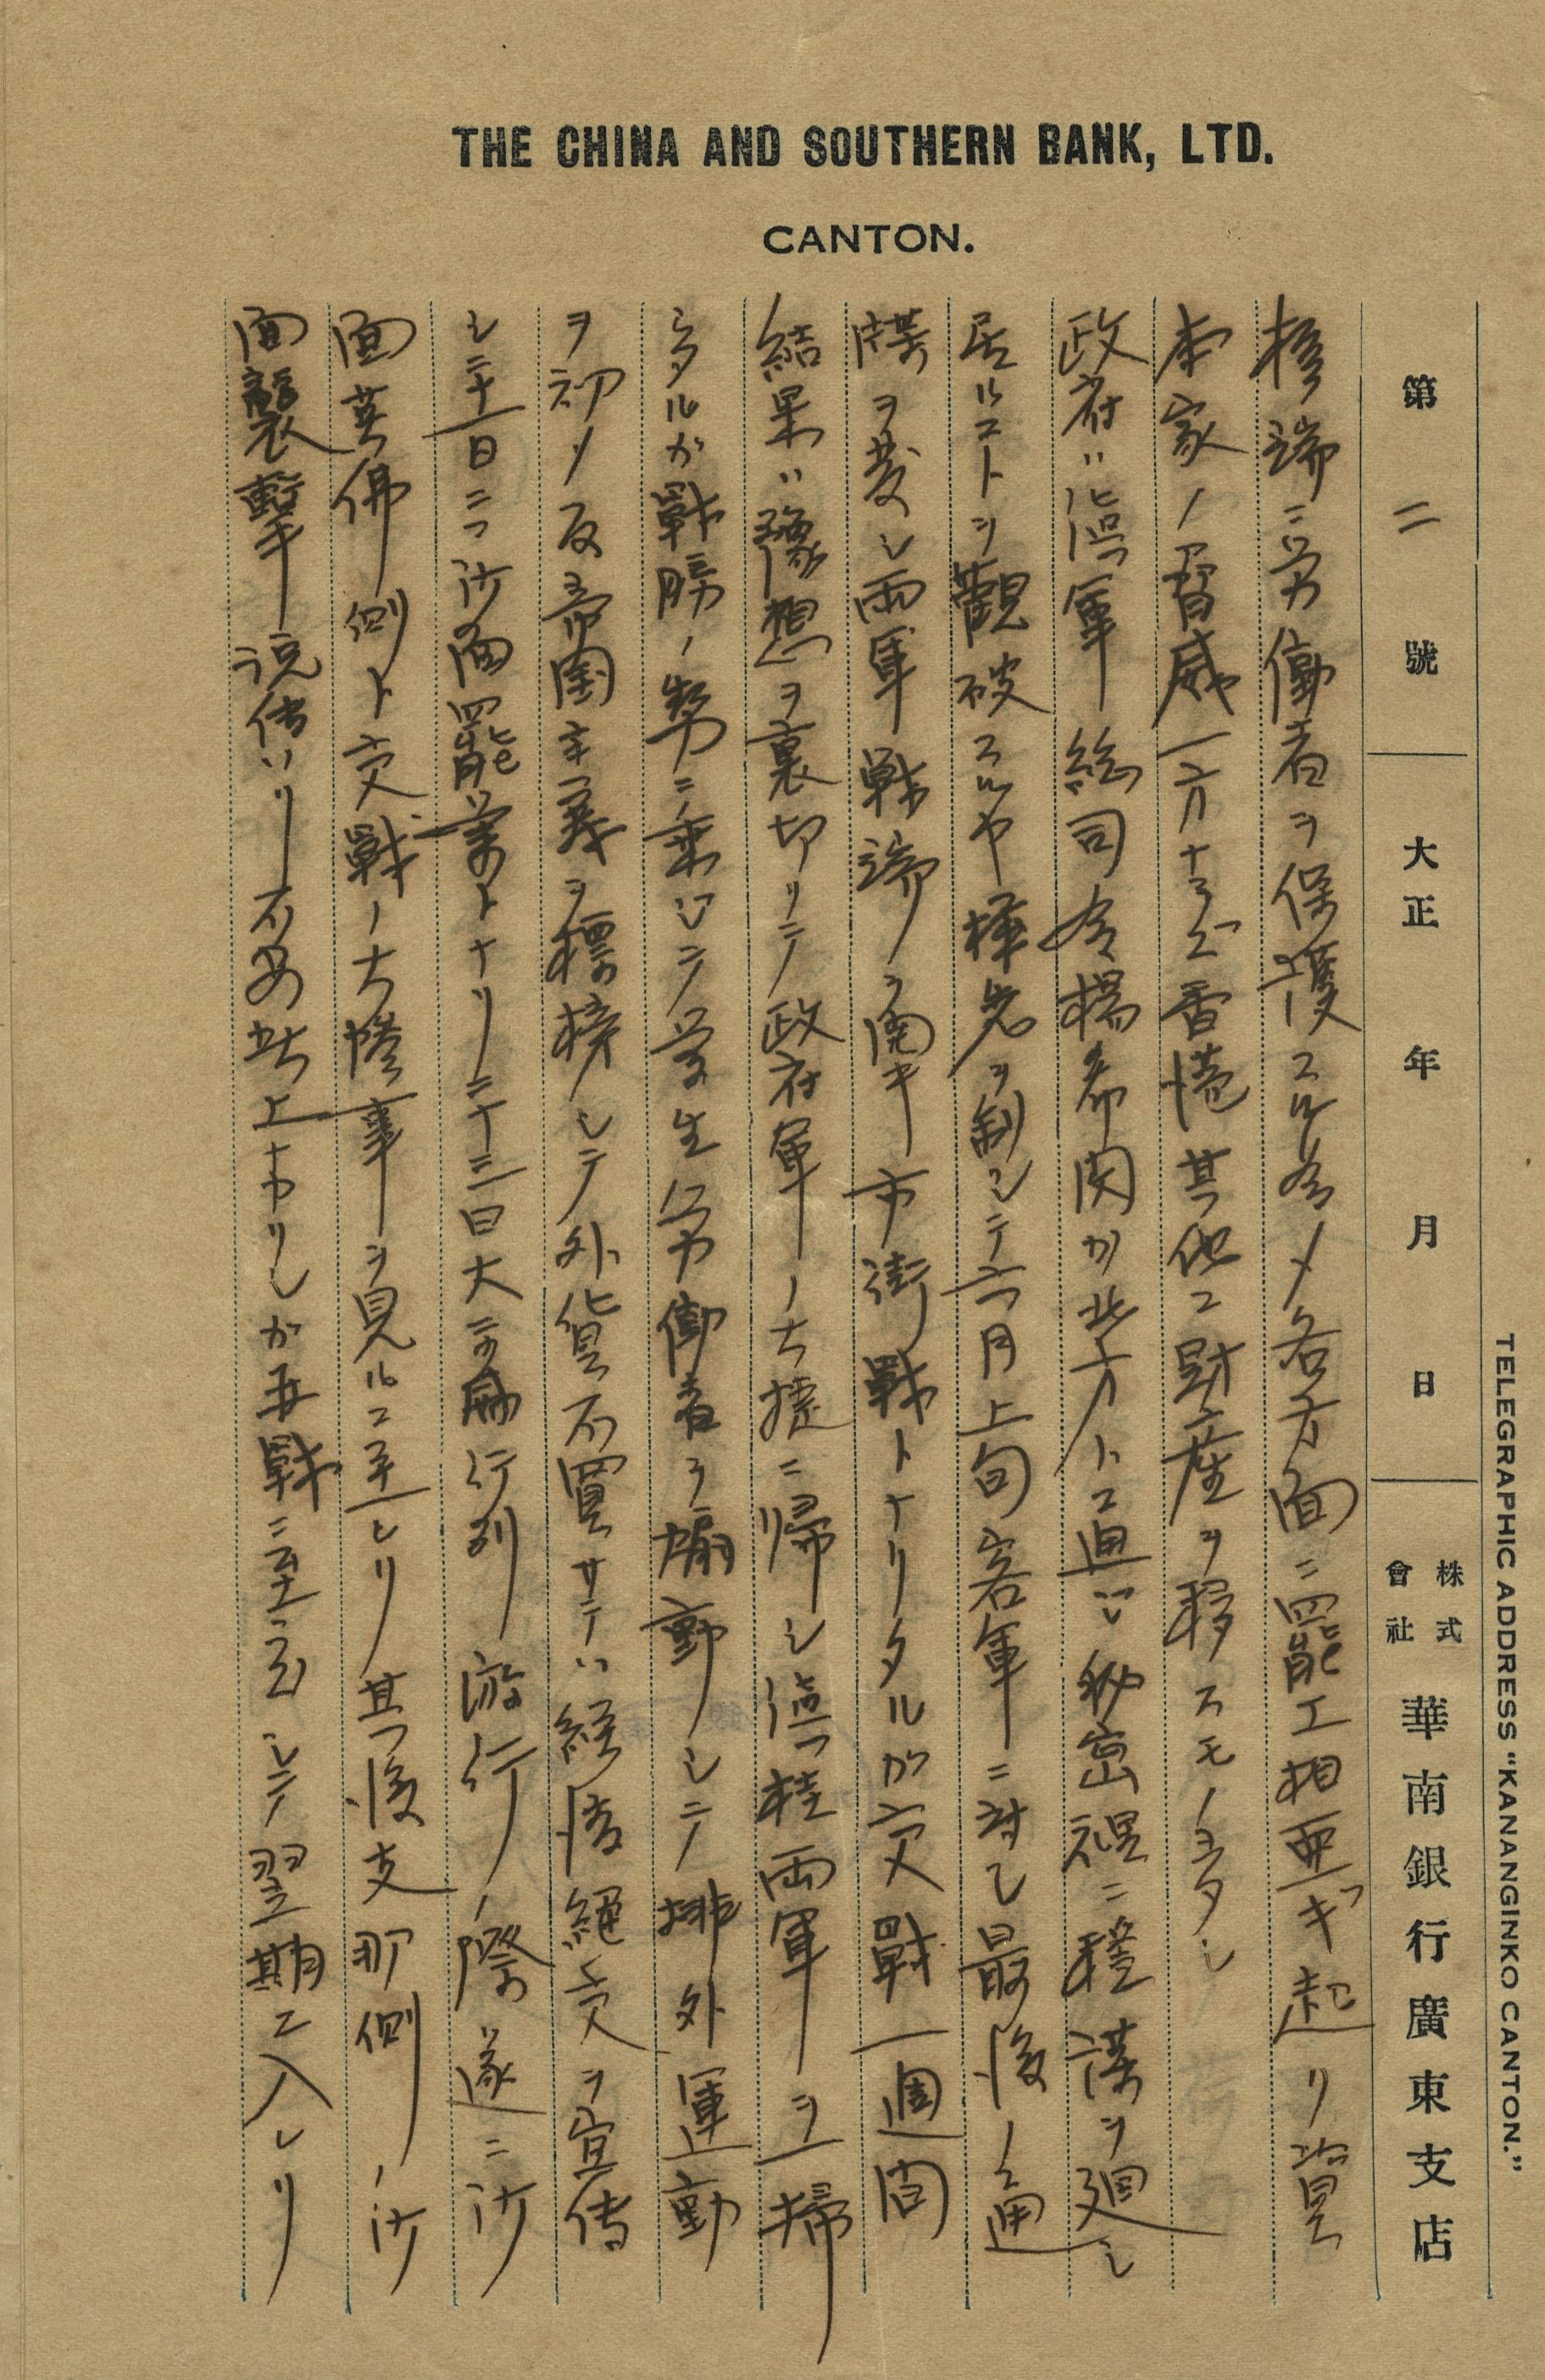 THE CHINA AND SOUTHERN BANK, LTD.
CANTON.
TELEGRAPHIC ADDRESS "KANANGINKO CANTON."
第二號 大正 年 月 日 株式會社 華南銀行廣東支店
極端ニ労働者ヲ保護スル為メ各方面ニ罷工相亜ギ起リ資
本家ノ脅威一方ナラズ香港其他ニ財産ヲ移スモノ多シ
政府ハ滇軍総司令楊希閔カ北方ト通シ秘密裡ニ種謀ヲ廻シ
居ルコトヲ観破スルヤ機先ヲ制シテ六月上旬客軍ニ対シ最後ノ通
牒ヲ発シ両軍戦端ヲ開キ市街戦トナリタルガ交戦一週間
結果ハ豫想ヲ裏切リテ政府軍ノ大捷ニ帰シ滇桂両軍ヲ一掃
シタルガ戦勝ノ勢ニ乗シテ学生労働者ヲ煽動シテ排外運動
ヲ初メ反帝国主義ヲ標榜シテ外貨不買サテハ経済絶交ヲ宣伝
シ二十一日ニハ沙面罷業トナリ二十三日大示威行列游行ノ際遂ニ沙
面英佛側ト交戦ノ大惨事ヲ見ルニ至レリ其後支那側ノ沙
面襲撃説伝ハリ不安此上ナカリシガ再戦ニ至ラズシテ翌期ニ入レリ